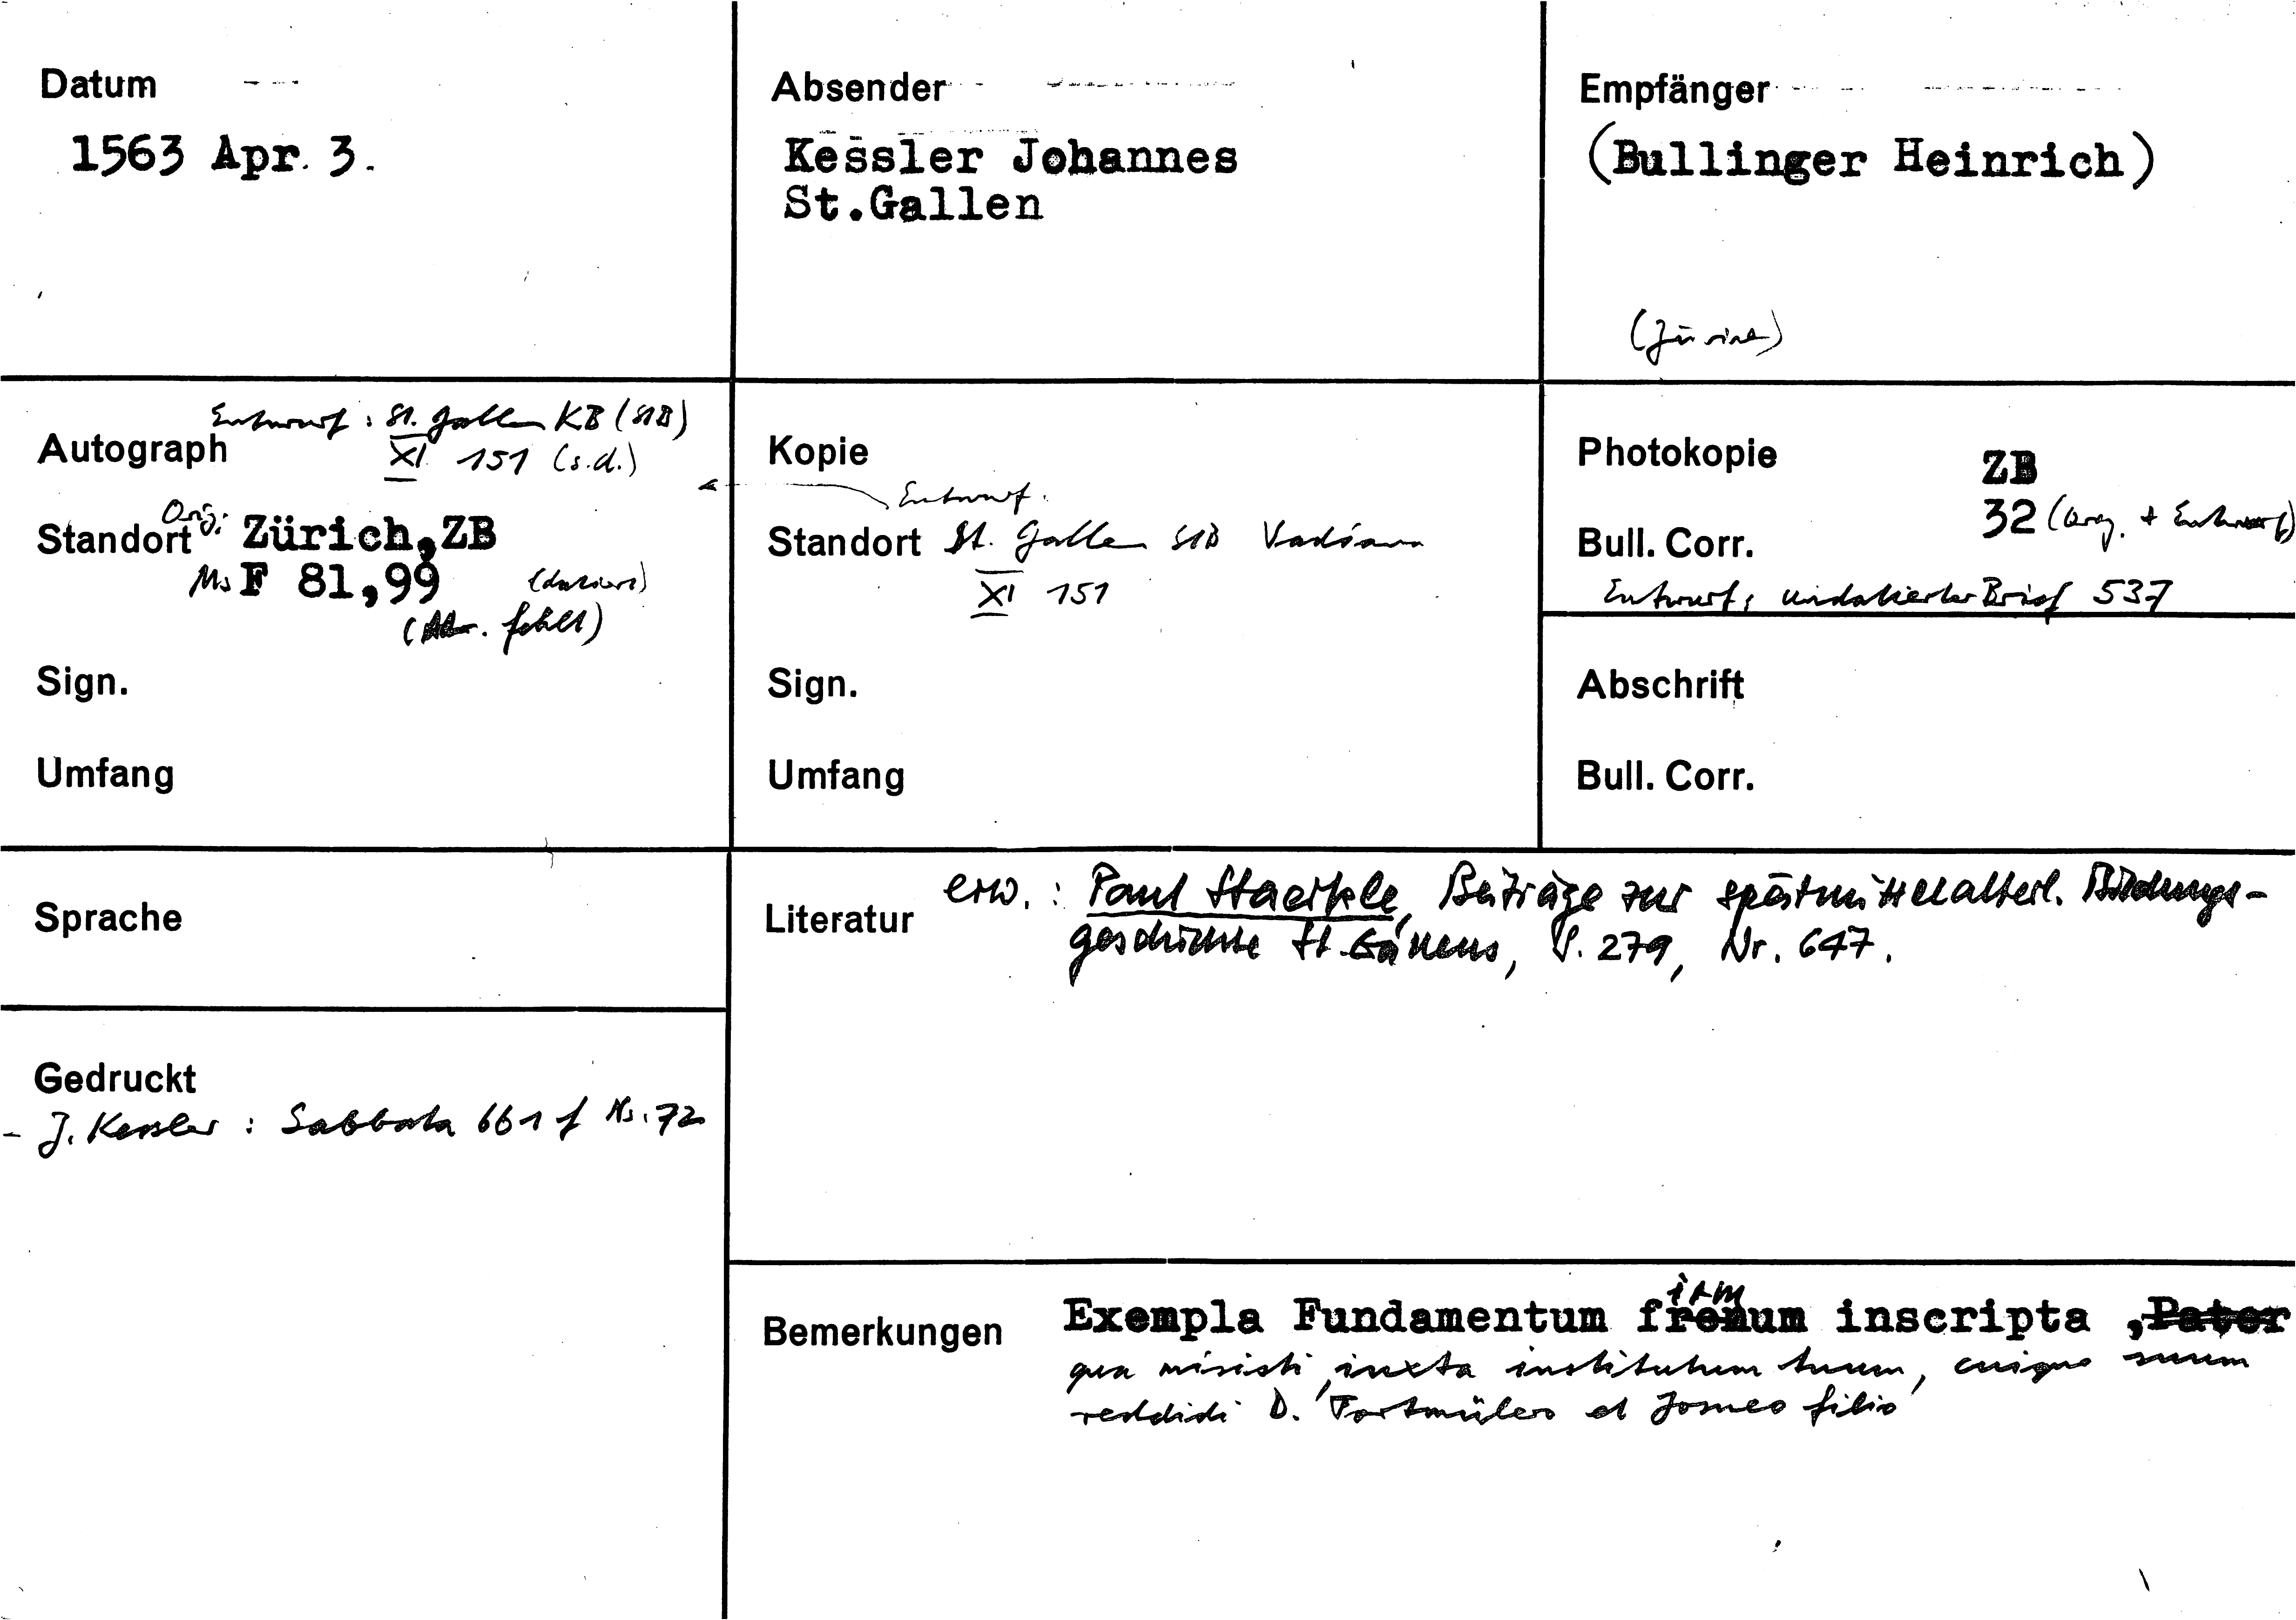 Datum
1563 Apr. 3.
Absender
Kessler Johannes
St.Gallen
Empfänger
(Bullinger Heinrich)
(Zürich)
Entwurf : St. Gallen KB (StB)
Autograph
XI 151 (s.d.)
Orig:
Standort Zürich,ZB
Ms F 81,99 (datiert)
(Adr. fehlt)
Sign.
Umfang
Kopie
Entwurf.
Standort St. Gallen StB Vadiana
XI 151
Sign.
Umfang
Photokopie ZB
Bull. Corr. 32 (Orig. + Entwurf)
Entwurf: undatierter Brief 537
Abschrift
Bull. Corr.
Sprache
Gedruckt
- J. Kessler : Sabbata 661 f Nr. 72
Literatur erw. : Paul Staerkle, Beiträge zur spätmittelalterl. Bildungs-
geschichte St.Gallens, S. 279, Nr. 647.
Bemerkungen Exempla Fundamentum firmum inscripta , Pater
qua misisti, iuxta institutum tuum, cuique suum
reddidi D. Fortmülero et Josueo filio